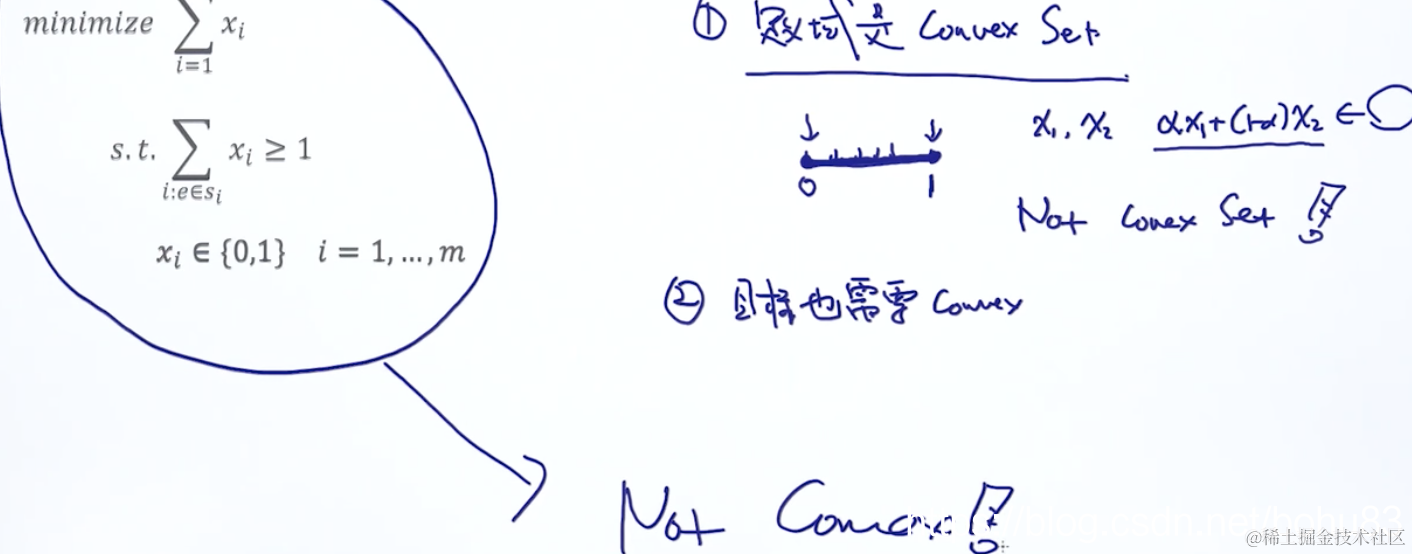 minimize ∑ x_i
i=1
s.t. ∑ x_i ≥ 1
i:e∈s_i
x_i ∈ {0,1} i = 1, …, m
① 是 Convex Set
0 1
x₁, x₂ αx₁+(1-α)x₂ ∈
Not Conex Set !
② 目标也需要 Convex
Not Convex!
blog.csdn.net/
@稀土掘金技术社区